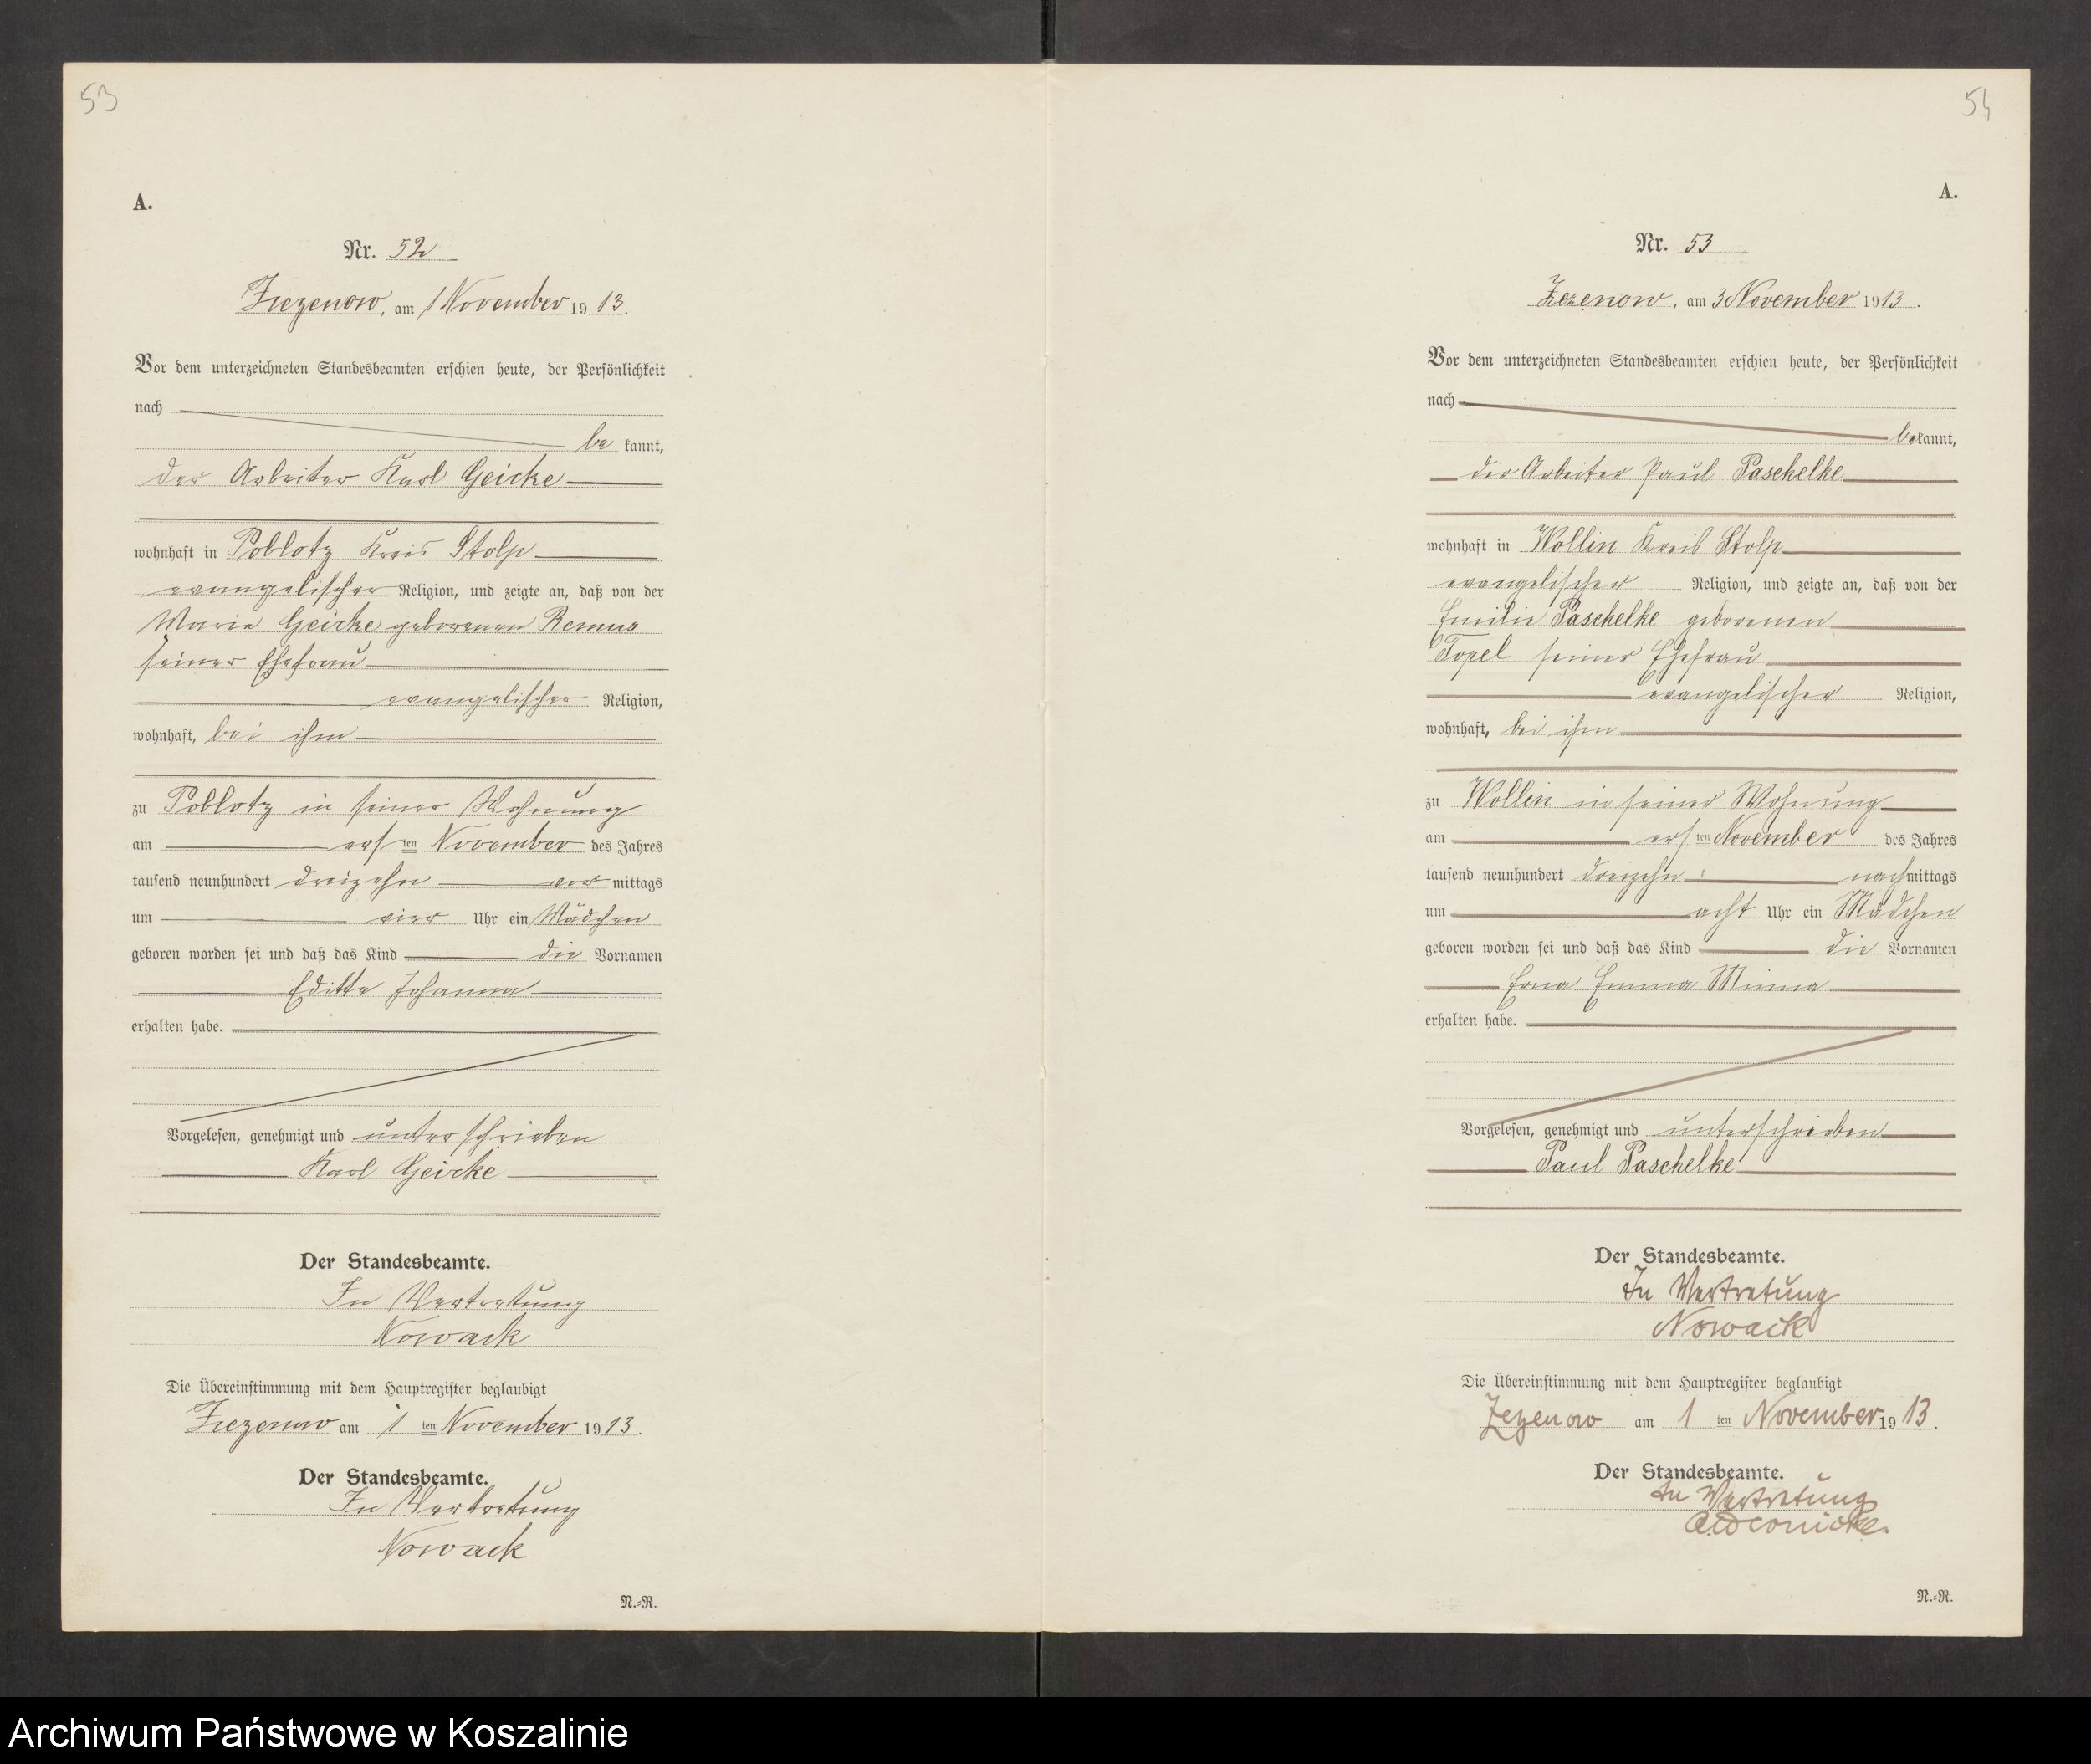 53
A.
Nr. 52
Zezenow, am 1 November 1913.
Vor dem unterzeichneten Standesbeamten erschien heute, der Persönlichkeit
nach
be kannt,
der Arbeiter Karl Geicke
wohnhaft in Poblotz Kreis Stolp
evangelischer Religion, und zeigte an, daß von der
Marie Geicke geborenen Remus
seiner Ehefrau
evangelischer Religion,
wohnhaft, bei ihm
zu Poblotz in seiner Wohnung
am ersten November des Jahres
tausend neunhundert dreizehn vormittags
um vier Uhr ein Mädchen
geboren worden sei und daß das Kind die Vornamen
Editta Johanna
erhalten habe.
Vorgelesen, genehmigt und unterschrieben
Karl Geicke
Der Standesbeamte.
In Vertretung
Nowack
Die Übereinstimmung mit dem Hauptregister beglaubigt
Zezenow am 1 ten November 1913.
Der Standesbeamte.
In Vertretung
Nowack
N.-R.
54
A.
Nr. 53
Zezenow, am 3 November 1913.
Vor dem unterzeichneten Standesbeamten erschien heute, der Persönlichkeit
nach
bekannt,
der Arbeiter Paul Paschelke
wohnhaft in Wollin Kreis Stolp
evangelischer Religion, und zeigte an, daß von der
Emilie Paschelke geborenen
Topel seiner Ehefrau
evangelischer Religion,
wohnhaft, bei ihm
zu Wollin in seiner Wohnung
am ersten November des Jahres
tausend neunhundert dreizehn nachmittags
um acht Uhr ein Mädchen
geboren worden sei und daß das Kind die Vornamen
Erna Emma Minna
erhalten habe.
Vorgelesen, genehmigt und unterschrieben
Paul Paschelke
Der Standesbeamte.
In Vertretung
Nowack
Die Übereinstimmung mit dem Hauptregister beglaubigt
Zezenow am 1 ten November 1913.
Der Standesbeamte.
In Vertretung
N.-R.
Archiwum Państwowe w Koszalinie